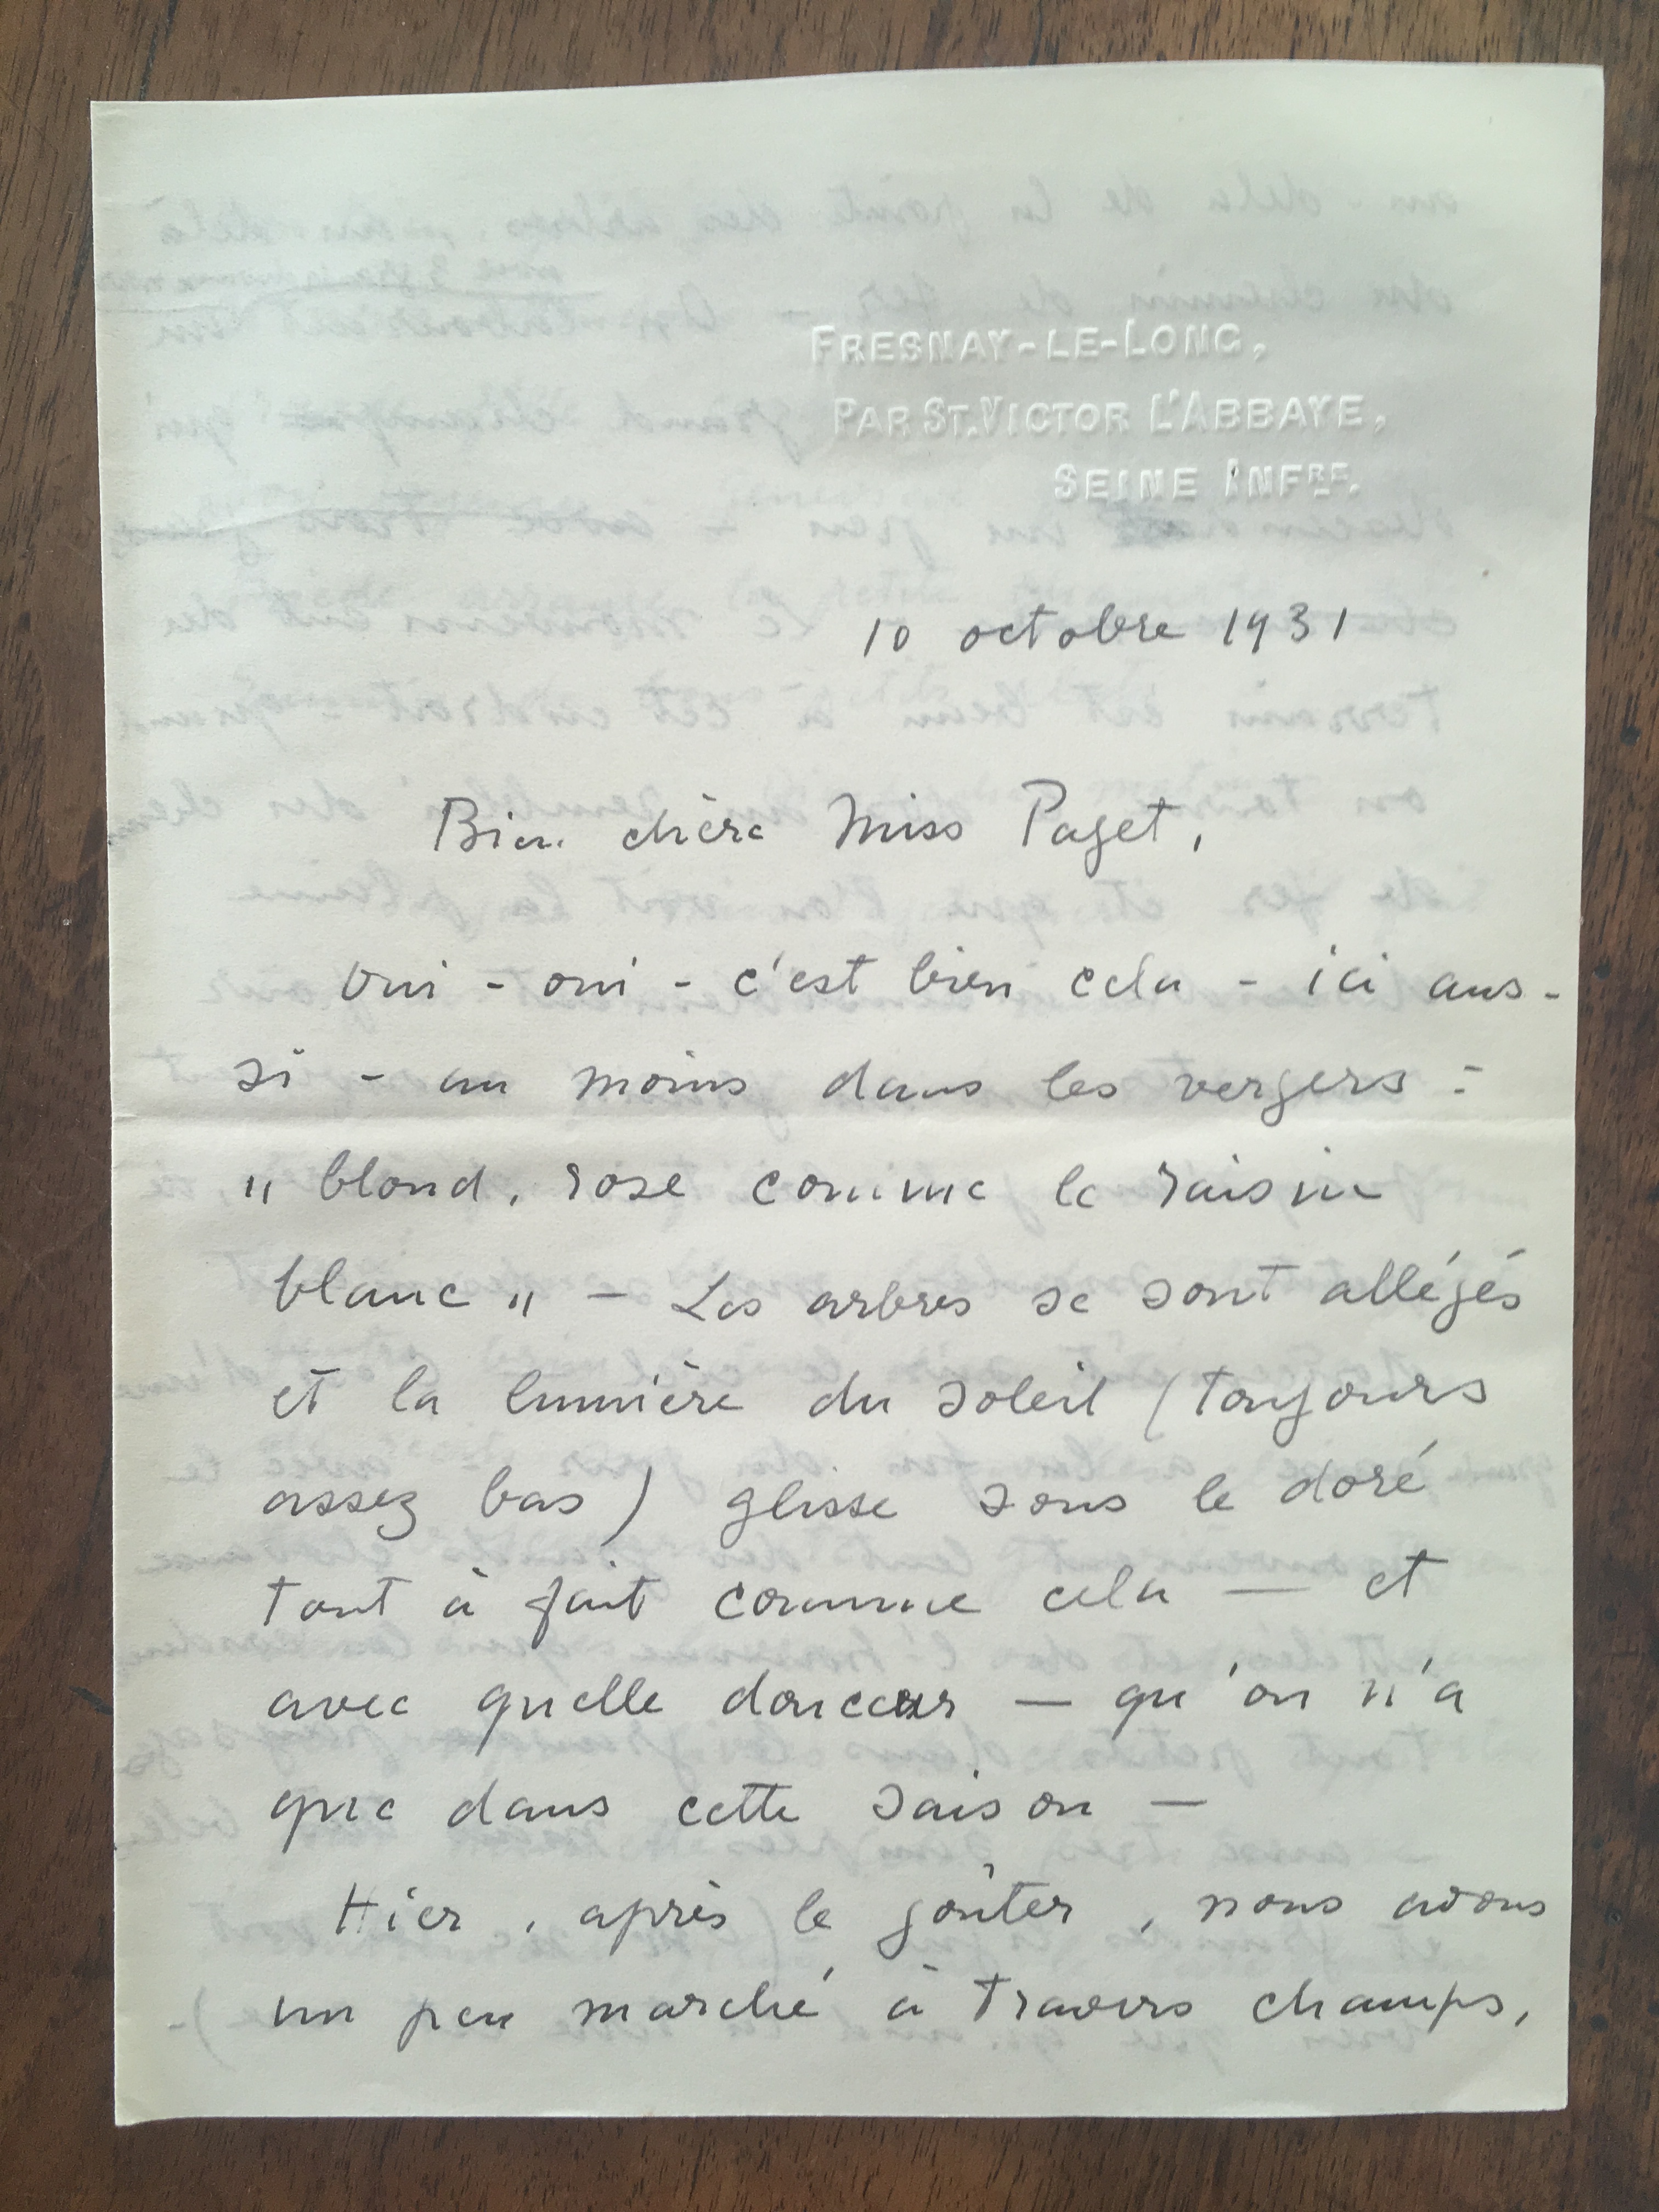 FRESNAY-LE-LONG,
PAR ST. VICTOR L'ABBAYE,
SEINE INFRE.
10 octobre 1931
Bien chère Miss Paget,
Oui - oui - c'est bien cela - ici aus-
si - au moins dans les vergers :
" blond, rose comme le raisin
blanc " - Les arbres se sont allégés
et la lumière du soleil (toujours
assez bas) glisse sous le doré
tout à fait comme cela — et
avec quelle douceur — qu'on n'a
que dans cette saison —
Hier, après le goûter, nous avons
un peu marché à travers champs,